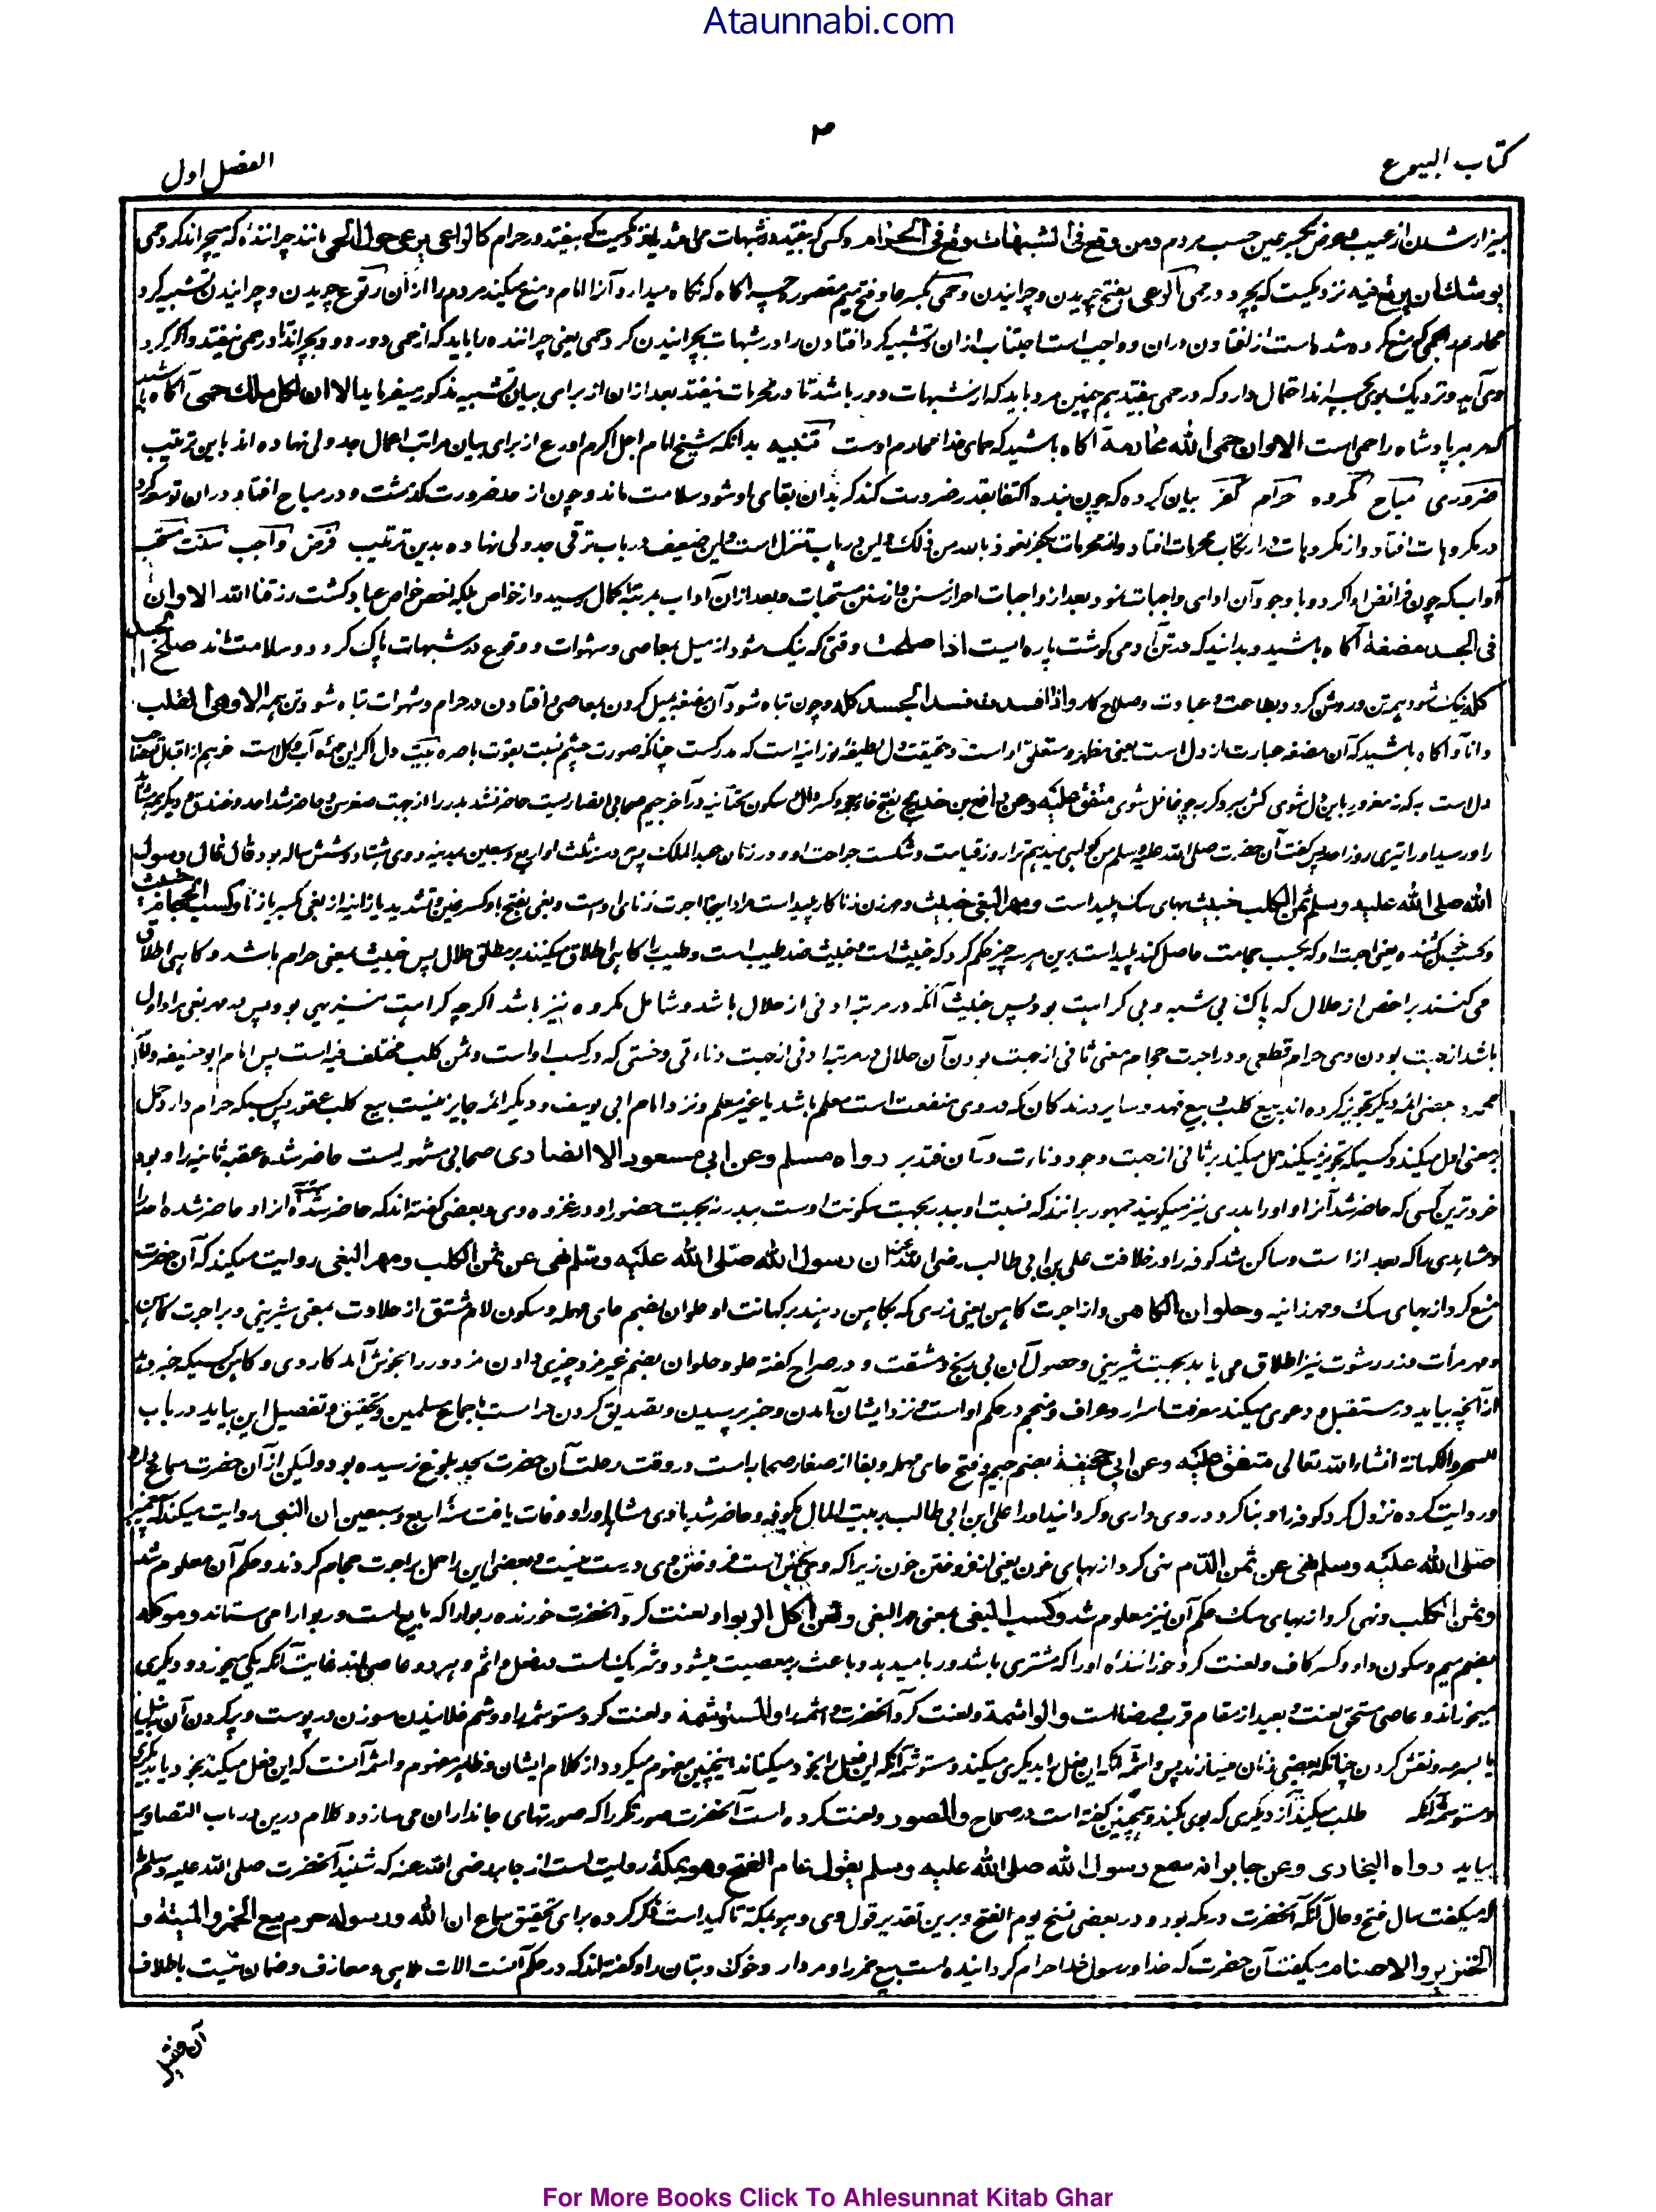 Ataunnabi.com
۳
کتاب البیوع
الفصل اول
بیزار شدن از عیب و عرض بکسر عین حسب مردم ومن وقع فی الشبهات وقع فی الحرام وکسی که بیفتد در شبهات در حرام کالراعی یرعی حول الحمی مانند چراننده که میچراند گرد حمی
یوشک ان یرتع فیه نزدیکست که بچرد در حمی الوعی بفتح چریدن و چرانیدن وحمی بکسر حا وفتح میم مقصور چراگاه که نگاه میدارد آنرا امام و منع میکند مردم را از ان رتوع چریدن و چرانیدن تشبیه کرد
محارم را بحمی که منع کرده شده است از افتادن دران و واجب است اجتناب ازان و تشبیه کرد افتادن را در شبهات بچرانیدن گرد حمی یعنی چراننده را باید که از حمی دور رود و بچراند تا در حمی نیفتد واگر گرد
وی آید و نزدیک بوی بچراند احتمال دارد که در حمی بیفتد همچنین مرد باید که از شبهات دور باشد تا در محرمات نیفتد بعد ازان از برای بیان تشبیه مذکور میفرماید الا ان لکل ملک حمی آگاه باشید
که مر هر پادشاه را حمی است الا وان حمی الله محارمه آگاه باشید که حمای خدا محارم اوست تنبیه بدانکه شیخ امام اجل اکرم اورع از برای بیان مراتب اعمال جدولی نهاده اند باین ترتیب
ضروری مباح مکروه حرام کفر بیان کرده که چون بنده اکتفا بقدر ضرورت کند که بدان بقای او شود سلامت ماند و چون از حد ضرورت گذشت و در مباح افتاد دران توسع کرد
در مکروهات افتاد و از مکروهات در ارتکاب محرمات افتاد و از محرمات بکفر نعوذ بالله من ذلک و این در باب تنزل است و این ضعیف در باب ترقی جدولی نهاده بدین ترتیب فرض واجب سنت مستحب
آداب که چون فرائض ادا کرد و با وجود آن ادای واجبات نمود بعد از واجبات احراز سنن و از سنن مستحبات و بعد ازان آداب بمرتبه کمال رسید و از خواص بلکه اخص خواص عباد گشت رزقنا الله الا وان
فی الجسد مضغة آگاه باشید و بدانید که در تن آدمی گوشت پاره ایست اذا صلحت وقتی که نیک شود از میل بمعاصی و شهوات و وقوع در شبهات پاک گردد و سلامت ماند صلح الجسد
کله نیک شود همه تن و روشن گردد بطاعت و عبادت وصلاح کار واذا فسدت فسد الجسد کله وچون تباه شود آن مضغه بمیل کردن بمعاصی و افتادن در حرام و شهوات تباه شود تن همه الا وهی القلب
دانا و آگاه باشید که آن مضغه عبارت از دل است یعنی مظهر و متعلق او است و حقیقت دل لطیفهٔ نورانیه است که مدرکست چنانکه صورت چشم نسبت بقوت باصره بیت دل اگر این مهرهٔ آب و گل است خر هم از اقبال
دل است به که نه مغرور باین دل شوی متفق علیه وعن رافع بن خدیج بفتح خا معجمه وکسر دال سکون تحتانیه در آخر جیم صحابی انصاریست حاضر نشد بدر را از جهت صغر سن و حاضر شد احد و خندق و دیگر
را و رسید او را تیری روز احد پس گفت آن حضرت صلی الله علیه وسلم من گواهی میدهم ترا روز قیامت و شکست جراحت او در زمان عبدالملک پس مرد سنه ثلث او اربع و سبعین بمدینه و وی هشتاد و شش ساله بود قال قال رسول
الله صلی الله علیه وسلم ثمن الکلب خبیث بهای سگ پلید است ومهر البغی خبیث ومهر زن زناکار پلید است مراد اینجا اجرت زنای اوست و بغی بفتح با وکسر غین و تشدید یا زانیه از بغی بکسر با زنا وکسب الحجام خبیث
وکسب خون کشنده یعنی اجرت او که بحسب حجامت حاصل کند پلید است برین هر سه چیز حکم کرد که خبیث است و خبیث ضد طیب است و طیب را گاهی اطلاق میکنند بر مطلق حلال پس خبیث بمعنی حرام باشد و گاهی اطلاق
می کنند بر اخص از حلال که پاک بی شبه و بی کراهت بود پس خبیث آنکه در مرتبه ادنی از حلال باشد و شامل مکروه نیز باشد اگر چه کراهت تنزیهی بود پس در مهر بغی مراد اول
باشد از جهت بودن وی حرام قطعی و در اجرت حجام معنی ثانی از جهت بودن آن حلال در مرتبه ادنی از جهت دناءتی و خستی که در کسب او است و ثمن کلب مختلف فیه است پس امام ابو حنیفه و
محمد و بعضی ائمه دیگر تجویز کرده اند بیع کلب و بیع فهد و سایر درندگان که در وی منفعت است معلم باشد یا غیر معلم و نزد امام ابی یوسف و دیگر ائمه جایز نیست بیع کلب عقور پس کسیکه حرام دارد حمل
بر معنی اول میکند و کسیکه تجویز میکند حمل میکند بر ثانی از جهت وجود دناءت در آن فتدبر رواه مسلم وعن ابی مسعود الانصاری صحابی مشهور است حاضر شده عقبه ثانیه را و بود
خردترین کسی که حاضر شد آنرا و او را بدری نیز میگویند جمهور برانند که نسبت او ببدر بجهت سکونت اوست ببدر نه بجهت حضور او در غزوه وی و بعضی گفته اند که حاضر شده آنرا و حاضر شده احد را
ومشاهدی را که بعد ازانست وساکن شد کوفه را در خلافت علی بن ابی طالب رضی الله عنه ان رسول الله صلی الله علیه وسلم نهی عن ثمن الکلب ومهر البغی روایت میکند که آن حضرت
منع کرد از بهای سگ و مهر زانیه وحلوان الکاهن و از اجرت کاهن یعنی زری که بکاهن دهند بر کهانت او حلوان بضم حای مهمله وسکون لام مشتق از حلاوت بمعنی شیرینی و بر اجرت کاهن
ومهر مرأت و نذر و رشوت نیز اطلاق می یابد بجهت شیرینی و حصول آن بی رنج و مشقت و در صراح گفته حلو و حلوان بضم غیر مزد چیزی دادن مزدور را بخوش آمد کار وی و کاهن کسیکه خبر دهد
از آنچه بیاید در مستقبل و دعوی میکند معرفت اسرار و عراف و منجم در حکم او است و نزد ایشان آمدن و خبر پرسیدن و تصدیق کردن حرامست باجماع مسلمین و تحقیق و تفصیل این بیاید در باب
السحر والکهانة انشاء الله تعالی متفق علیه وعن ابی جحیفة بضم جیم و فتح حای مهمله و بفا از صغار صحابه است در وقت رحلت آن حضرت بحد بلوغ نرسیده بود ولیکن از آن حضرت سماع دارد
وروایت کرده نزول کرد کوفه را و بنا کرد در وی داری و گردانید او را علی ابن ابی طالب بر بیت المال بکوفه و حاضر شد با وی مشاهد او را و وفات یافت سنه اربع و سبعین ان النبی روایت میکند که پیغمبر
صلی الله علیه وسلم نهی عن ثمن الدم نهی کرد از بهای خون یعنی از فروختن خون زیرا که وی نجس است و فروختن وی درست نیست و بعضی این را حمل بر اجرت حجام کردند و حکم آن معلوم شد
وثمن الکلب ونهی کرد از بهای سگ حکم آن نیز معلوم شد وکسب البغی بمعنی مهر البغی ولعن اکل الربوا ولعنت کرد آنحضرت خورنده ربوا را که بایع است و ربوا را می ستاند وموکله
بضم میم وسکون واو وکسر کاف ولعنت کرد خوراننده او را که مشتری باشد و ربا میدهد و باعث بر معصیت میشود و شریک است در فعل و اثم و هر دو عاصی اند غایت آنکه یکی میخورد و دیگری
میخوراند و عاصی مستحق لعنت و بعید از مقام قرب و رضا است والواشمة ولعنت کرد آنحضرت واشمه را والمستوشمة ولعنت کرد مستوشمه را و وشم خلانیدن سوزن در پوست و پر کردن آن بنیل
یا سرمه و نقش کردن چنانکه بعضی زنان میسازند پس واشمه آنکه این فعل را بدیگری میکند و مستوشمه آنکه این فعل را بخود میکناند اینچنین مفهوم میگردد از کلام ایشان و ظاهر مفهوم واشمه آنست که این فعل میکند بخود یا بدیگری
ومستوشمه آنکه طلب میکند از دیگری که بوی بکند و همچنین گفته است در صحاح والمصور ولعنت کرده است آنحضرت صورتگر را که صورتهای جانداران می سازد و کلام درین در باب التصاویر
بیاید رواه البخاری وعن جابر انه سمع رسول الله صلی الله علیه وسلم یقول عام الفتح وهو بمکة روایت است از جابر رضی الله عنه که شنید آنحضرت صلی الله علیه وسلم
که میگفت سال فتح وحال آنکه آنحضرت در مکه بود و در بعضی نسخ یوم الفتح و برین تقدیر قول وی وهو بمکة تاکید است ذکر کرده برای تحقیق سماع ان الله ورسوله حرم بیع الخمر والمیتة و
الخنزیر والاصنام میگفت آن حضرت که خدا و رسول خدا حرام گردانیده است بیع خمر را و مردار و خوک و بتان را و گفته اند که در حکم آنست الات ملاهی و معازف و ضمان نیست باتلاف
For More Books Click To Ahlesunnat Kitab Ghar